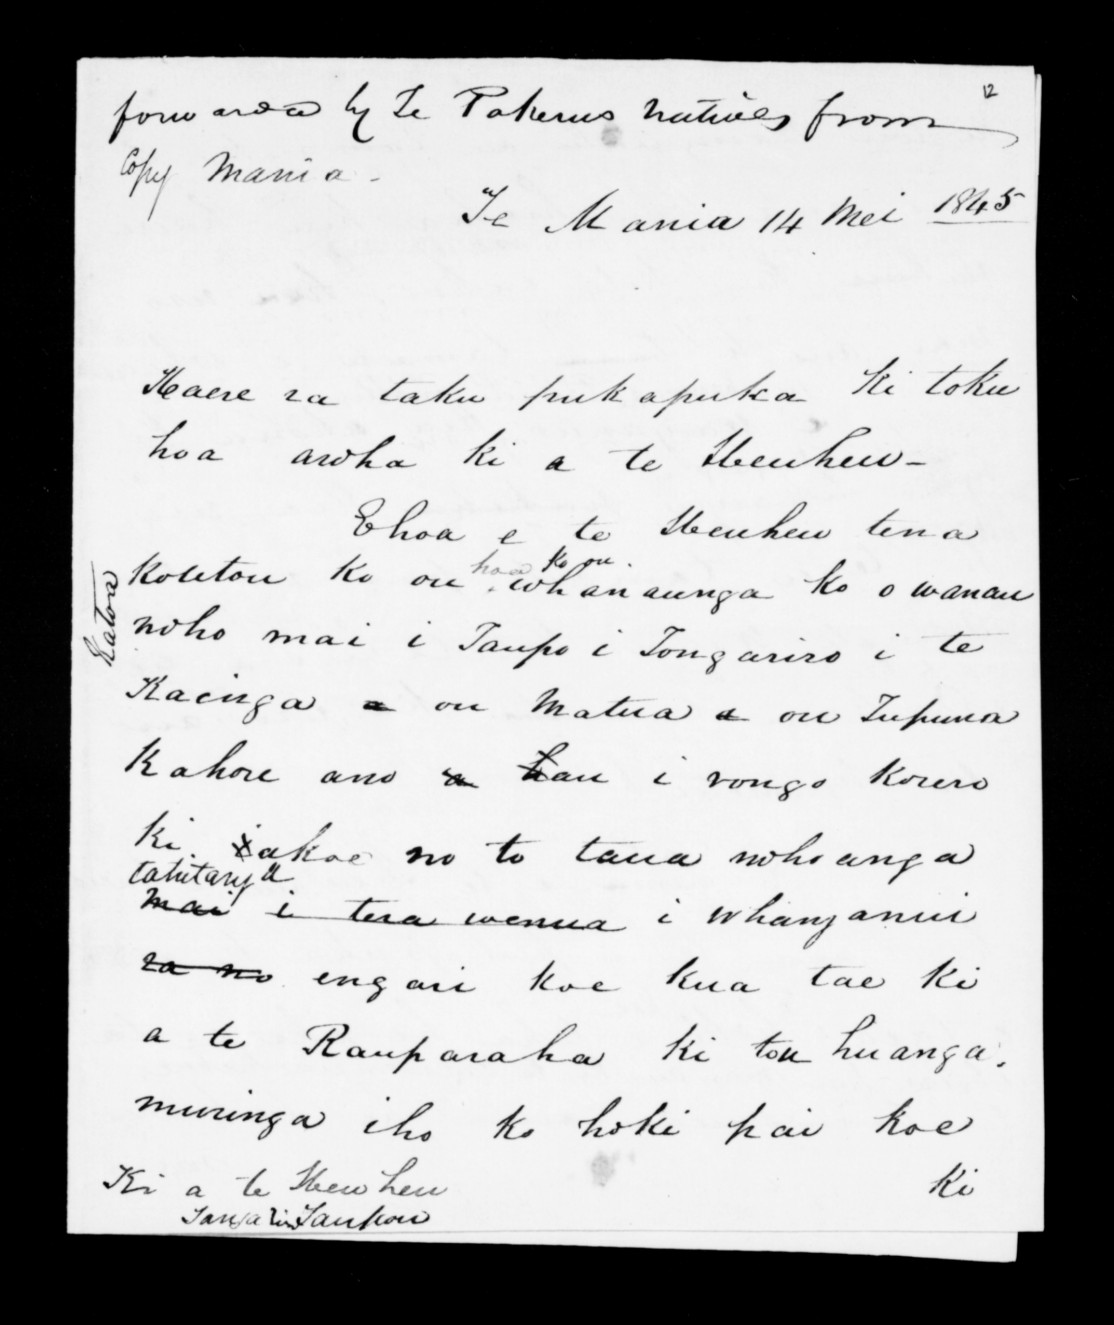 12
forwarded by Te Pakerus natives from
Copy Mania -
Te Mania 14 Mei 1845
Haere ra taku pukapuka ki toku
hoa aroha ki a te Heuheu -
Ehoa e te Heuheu tena
hoa ko ou
koutou ko ou whanaunga ko o wanau
Katoa
noho mai i Taupo i Tongariro i te
Kainga a ou Matua a ou Tupuna
Kahore ano a hau i rongo korero
ki iakoe no to taua nohoanga
tahitanga
mai i tera wenua i Whanganui
ra no engari koe kua tae ki
a te Rauparaha ki tou huanga.
muringa iho ka hoki pai koe
Ki a te Heuheu
ki
Tongariro Taupou